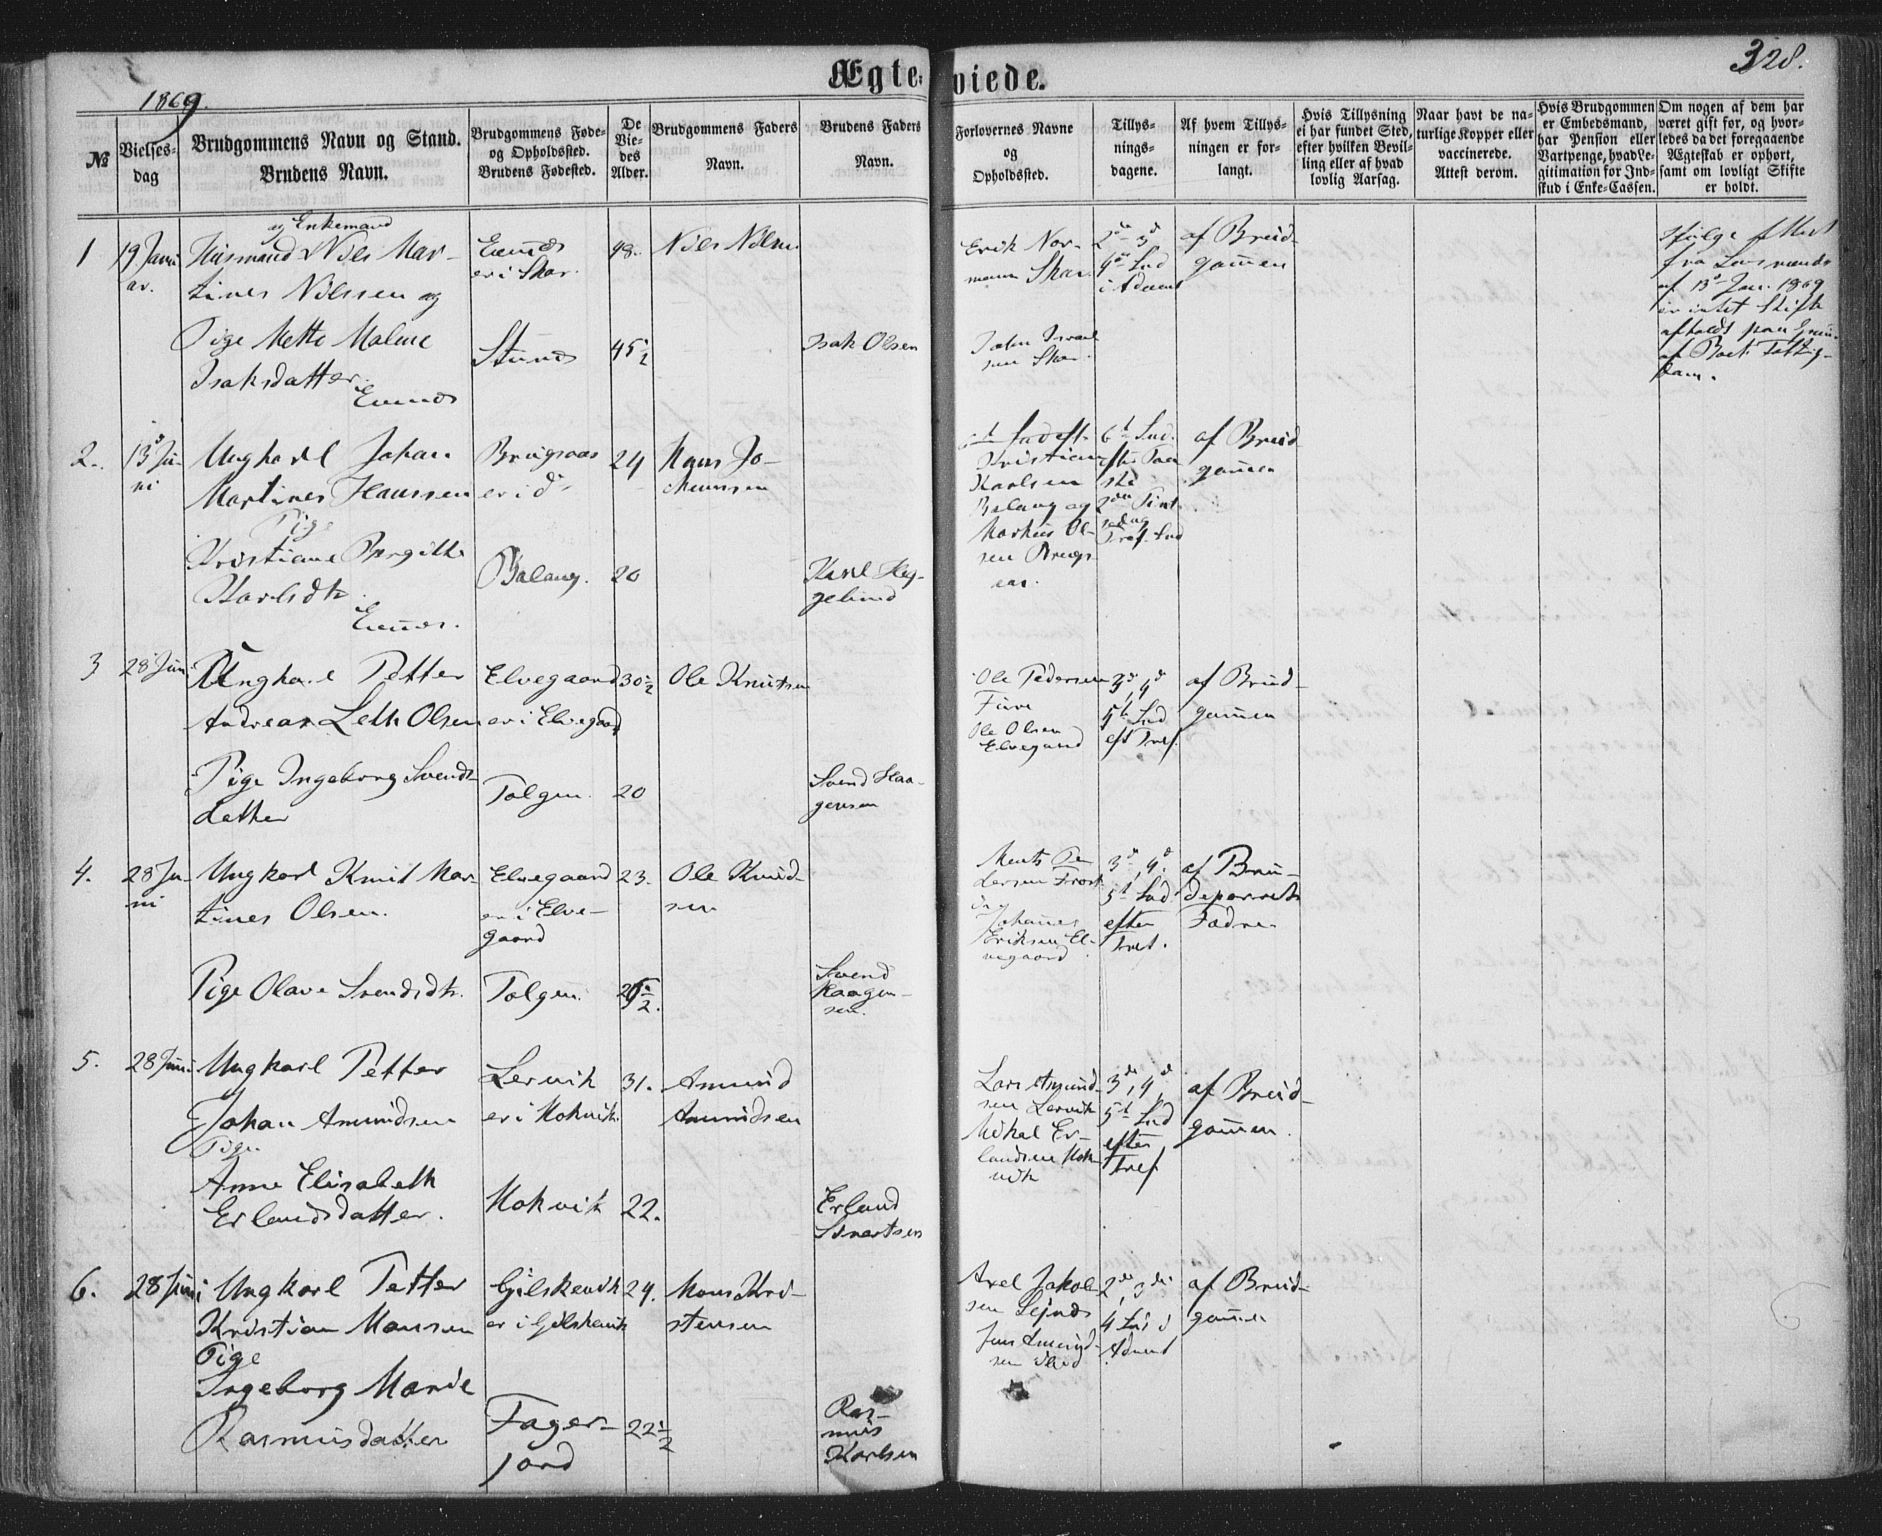 Ægteviede.
328.
1869.
№
Vielses-
dag
Brudgommens Navn og Stand.
Brudens Navn.
Brudgommens Føde-
og Opholdssted.
Brudens Fødested.
De
Vie-
des
Alder.
Brudgommens Faders
Navn.
Brudens Faders
Navn.
Forlovernes Navne
og
Opholdssted.
Tillys-
nings-
dagene.
Af hvem Tillys-
ningen er for-
langt.
Hvis Tillysning
ei har fundet Sted,
efter hvilken Bevil-
ling eller af hvad
lovlig Aarsag.
Naar havt de na-
turlige Kopper eller
vaccinerede.
Attest derom.
Hvis Brudgommen
er Embedsmand,
har Pension eller
Vartpenge, hvad Le-
gitimation for Ind-
skud i Enke-Cassen.
Om nogen af dem har
været gift før, og hvor-
ledes da det foregaaende
Ægteskab er ophørt,
samt om lovligt Skifte
er holdt.
1
19 Janu
ar.
og Enkemand
Husmand Nils Mar-
tines Nilssen og
Pige Mette Malene
Isaksdatter.
er i Skar.
48.
45½
Nils Nilsen
Isak Olsen
Erik Nor-
mann Skar.
John Israel
sen Skar.
2den 3d
4de Snd
i Advent
af Brud-
gommen
Ifølge Attest
fra Lensmand
af 13d Jan. 1869
er intet Skifte
afholdt paa Grund
af Boets Fattig-
dom.
2.
13d Ju-
ni
Ungkarl Johan
Martines Hanssen
Pige
Kristiane Bergitte
Karlsdtr.
er i d
Balang.
24
20
Hans Jo-
chumsen
Karl Heg-
gelund
Kristian
Karlsen
Balang og
Markus Ol-
sen
6t Snd.
eft. Paa
ske
2den Pint
sedag
Tref. Snd
af Brud
gommen
3
28 Juni
Ungkarl Petter
Andreas Leth Olsen
Pige Ingeborg Svends
datter
Elvegaard
er i Elvegaard
Tolgen.
30½
20
Ole Knutsen
Svend Haa-
gensen
Ole Pedersen
Ole Olsen
Elvegaard
3d, 4d
5t Snd
eft Tref.
af Brud-
gommen
4.
28 Ju-
ni
Ungkarl Knut Mar-
tines Olsen.
Pige Olave Svendsdtr.
Elvegaard
er i Elve-
gaard
Tolgen.
23.
Ole Knud-
sen
Svend
Haagen-
sen.
Ments Pe
dersen Frost
Johannes
Eriksen El-
vegaard
3d, 4d.
5t Snd
efter
Tref.
af Bru-
deparrets
Fædre.
5.
28 Juni.
Ungkarl Petter
Johan Amundsen
Pige.
Anne Elisabeth
Erlandsdatter.
Lervik
er i Kokvik.
Kokvik
31.
22.
Amund
Amundsen
Erland
Sivertsen
Lars Amund-
sen Lervik
Mikal Er-
landsen Kok
vik
3d, 4d,
5t Snd
efter
Tref
af Brud-
gommen.
6.
28 Juni
Ungkarl Petter
Kristian Monsen
Pige
Ingeborg Marie
Rasmusdatter
Fager-
jord
24.
22½
Mons Kri-
stensen
Ras-
mus
Karlsen
Axel Jakob-
sen
Jens Amund-
sen
2de, 3de
4 Snd i
Advent
af Brud-
gommen